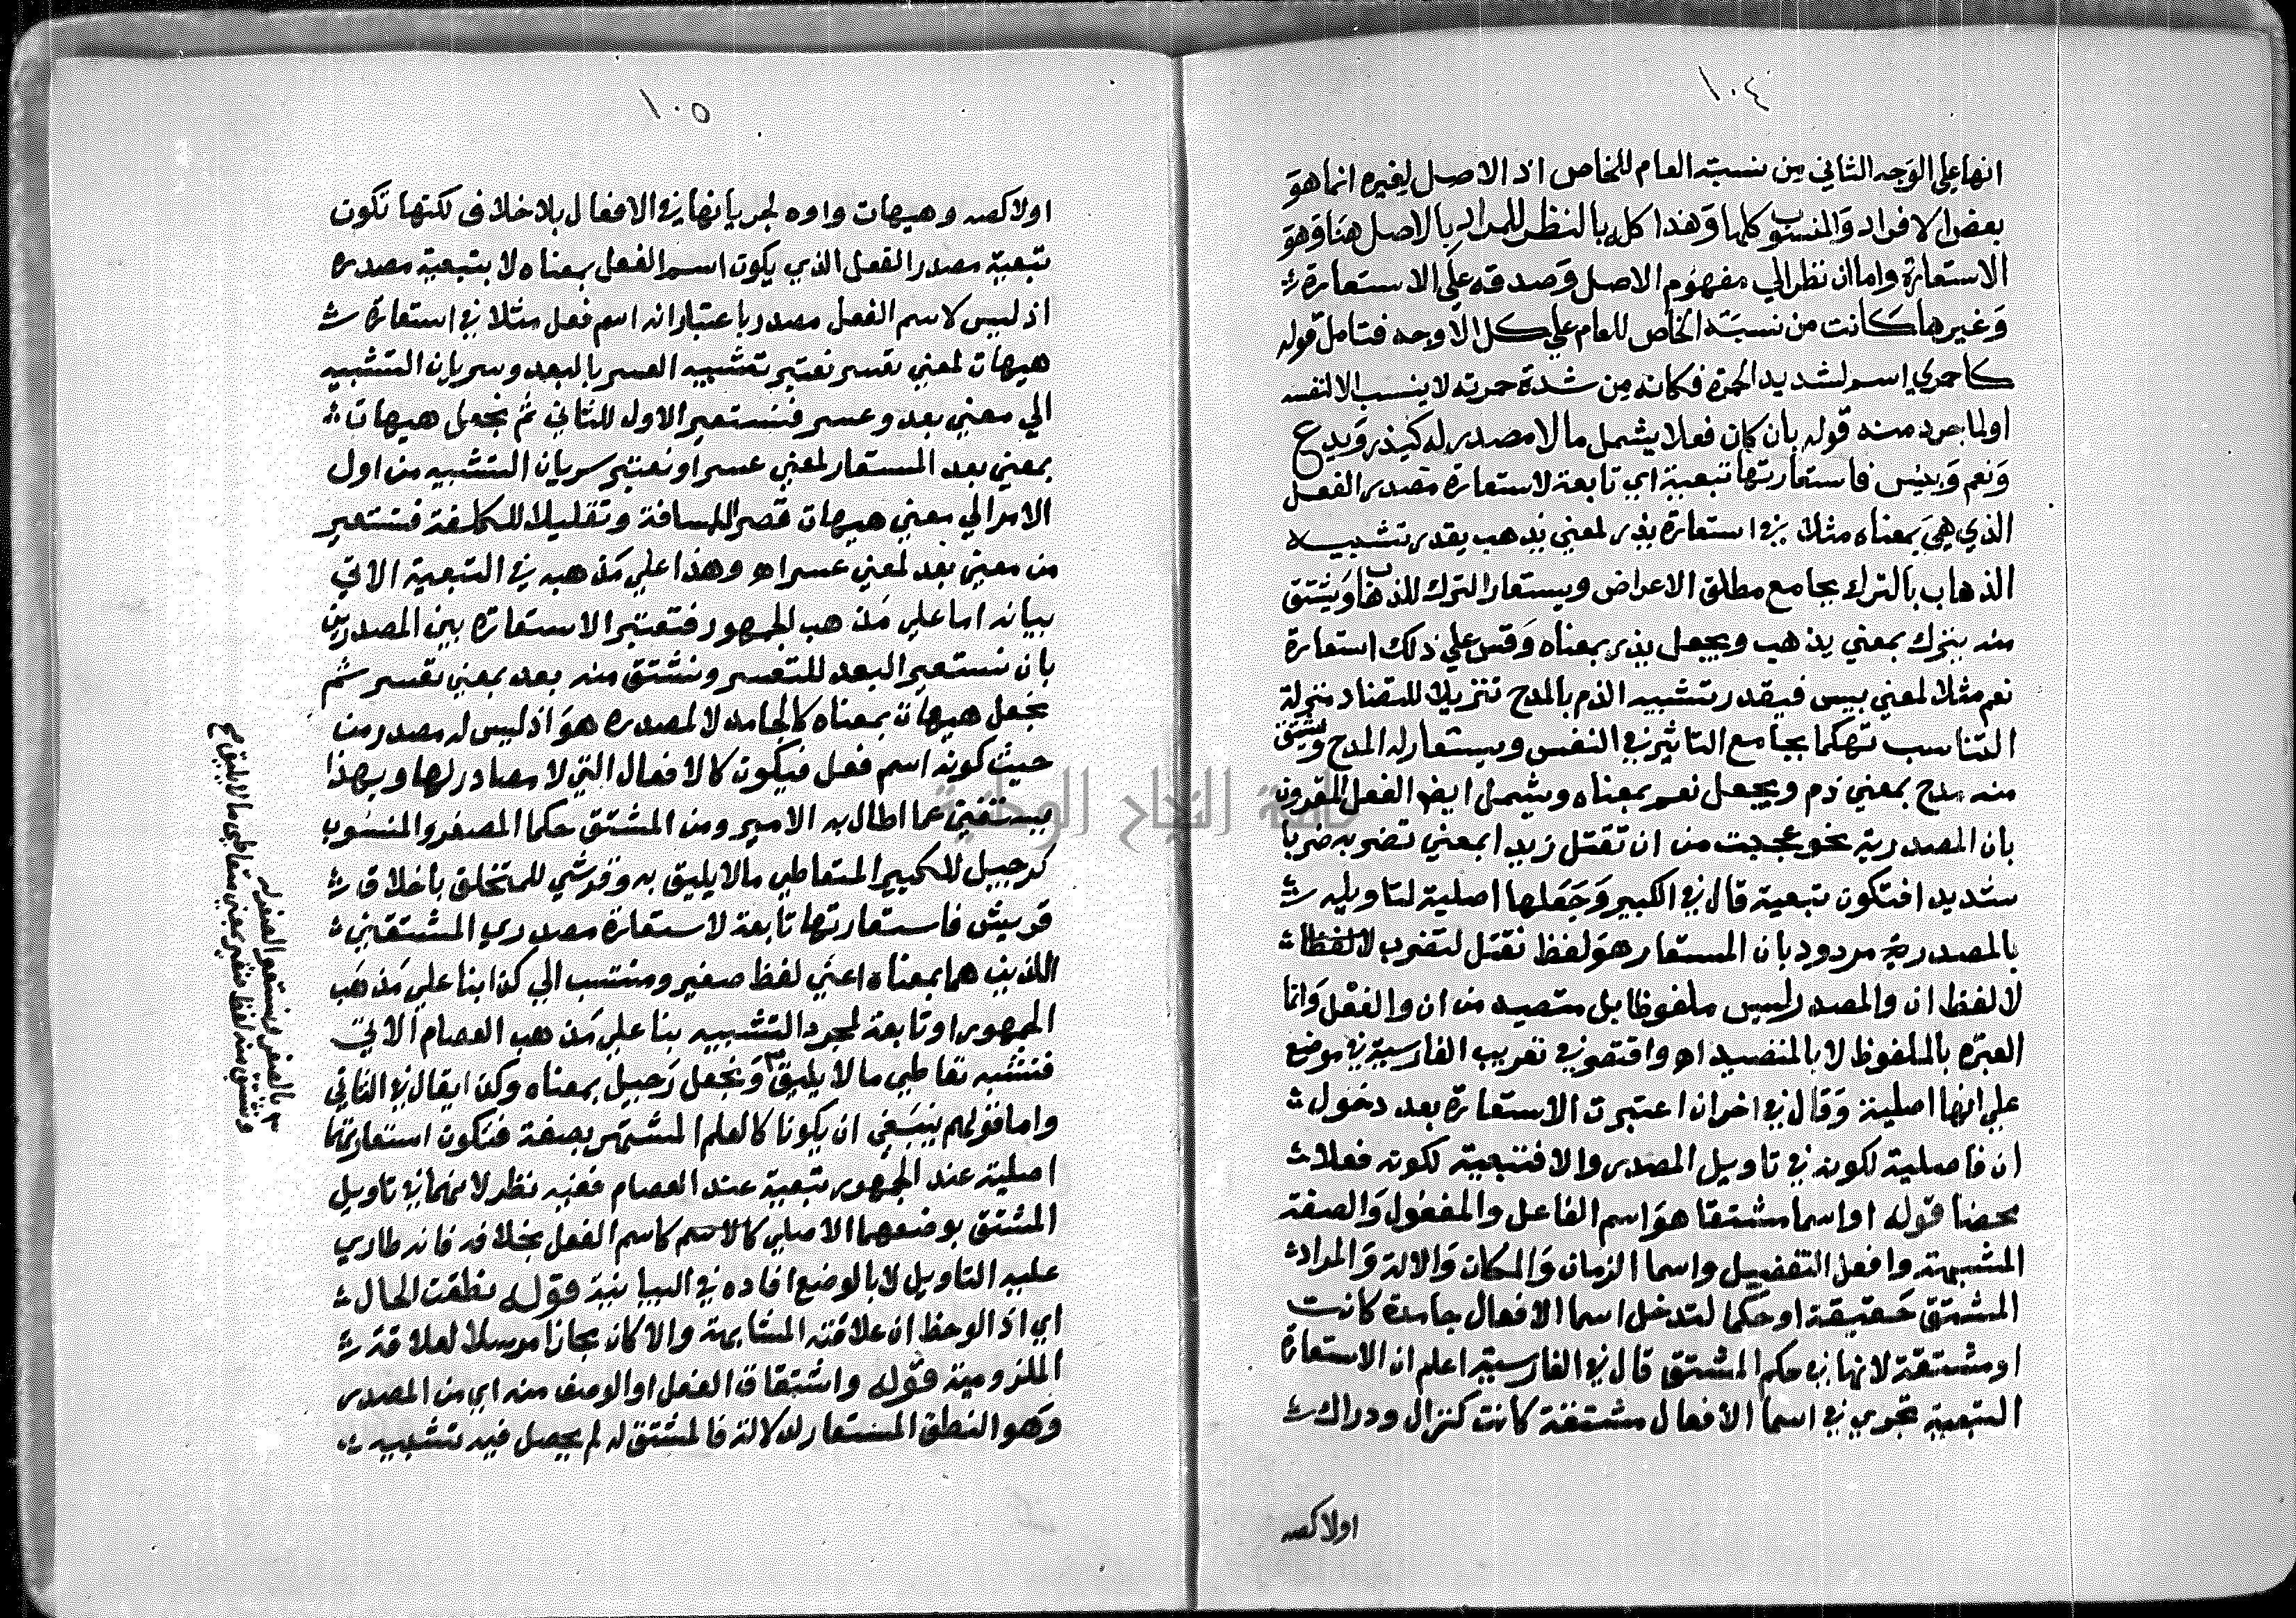 ١٠٤
انها على الوجه الثاني من نسبة العام للخاص اذ الاصل لغيره انما هو
بعض الافراد والمنسوب كلها وهذا كله بالنظر للمراد بالاصل هنا وهو
الاستعارة واما ان نظر الي مفهوم الاصل وصدقه علي الاستعارة
وغيرها كانت من نسبة الخاص للعام علي كل الاوجه فتامل قوله
كاحمري اسم لشديد الحمرة فكانه من شدة حمرته لا ينسب الا لنفسه
اولما جرد منه قوله بان كان فعلا يشمل ما لا مصدر له كيذر ويدع
ونعم وبئس فاستعارتها تبعية اي تابعة لاستعارة مصدر الفعل
الذي هي بمعناه مثلا في استعارة يذر لمعني يذهب يقدر تشبيه
الذهاب بالترك بجامع مطلق الاعراض ويستعار الترك للذهاب ويشتق
منه يترك بمعني يذهب ويجعل يذر بمعناه وقس علي ذلك استعارة
نعم مثلا لمعني بيس فيقدر تشبيه الذم بالمدح تنزيلا للتضاد منزلة
التناسب تهكما بجامع التاثير في النفس ويستعار له المدح ويشتق
منه مدح بمعني ذم ويجعل نعم بمعناه ويشمل ايضا الفعل المقرون
بان المصدرية نحو عجبت من ان تقتل زيدا بمعني تضربه ضربا
شديدا فتكون تبعية قال في الكبير وجعلها اصلية لتاويله
بالمصدرية مردود بان المستعار هو لفظ تقتل لتضرب لا لفظ
لا لفظ ان والمصدر ليس ملفوظا بل متصيد من ان والفعل وانما
العبرة بالملفوظ لا بالمتصيد اه واقتصر في تعريب الفارسية في موضع
علي انها اصلية وقال في اخر ان اعتبرت الاستعارة بعد دخول
ان فاصلية لكونه في تاويل المصدر والا فتبعية لكونه فعلا
محضا قوله او اسما مشتقا هو اسم الفاعل والمفعول والصفة
المشبهة وافعل التفضيل واسما الزمان والمكان والالة والمراد
المشتق حقيقة او حكما لتدخل اسما الافعال جامدة كانت
او مشتقة لانها في حكم المشتق قال في الفارسية اعلم ان الاستعارة
التبعية تجري في اسما الافعال مشتقة كانت كنزال ودراك
اولا كصه
١٠٥
اولا كصه وهيهات واوه لجريانها في الافعال بلا خلاف لكنها تكون
تبعية مصدر الفعل الذي يكون اسم الفعل بمعناه لا بتبعية مصدره
اذ ليس لاسم الفعل مصدر باعتبار انه اسم فعل مثلا في استعارة
هيهات لمعني تعسر نعتبر تشبيه العسر بالبعد وسريان التشبيه
الي معني بعد وعسر فنستعير الاول للثاني ثم نجعل هيهات
بمعني بعد المستعار لمعني عسر او نعتبر سريان التشبيه من اول
الامر الي معني هيهات قصرا للمسافة وتقليلا للكلفة فنستعير
من معني بعد لمعني عسر اه وهذا علي مذهبه في التبعية الاتي
بيانه اما علي مذهب الجمهور فتعتبر الاستعارة بين المصدرين
بان نستعير البعد للتعسر ونشتق منه بعد بمعني تعسر ثم
نجعل هيهات بمعناه كالجامد لا لمصدره هو اذ ليس له مصدر من
حيث كونه اسم فعل فيكون كالافعال التي لا مصادر لها وبهذا
يستغني عما اطال به الامير ومن المشتق حكما المصغر والمنسوب
كرجيل للكبير المتعاطي ما لا يليق به وقرشي للمتخلق باخلاق
قريش فاستعارتها تابعة لاستعارة مصدري المشتقين
اللذين هما بمعناه اعني لفظ صغير ومنتسب الي كذا بنا علي مذهب
الجمهور او تابعة لمجرد التشبيه بنا علي مذهب العصام الاتي
فنشبه تعاطي ما لا يليق ونجعل رجيل بمعناه وكذا يقال في الثاني
واما قولهم ينبغي ان يكونا كالعلم المشتهر بصفة فتكون استعارتهما
اصلية عند الجمهور تبعية عند العصام ففيه نظر لانهما في تاويل
المشتق بوضعهما الاصلي كالاسم كاسم الفعل بخلافه فانه طاري
عليه التاويل لا بالوضع افاده في البيانية قوله نطقت الحال
اي اذا لوحظ ان علاقته المشابهة والا كان مجازا مرسلا لعلاقة
الملزومية قوله واشتقاق الفعل او الوصف منه اي من المصدر
وهو النطق المستعار للدلالة فالمشتق له لم يحصل فيه تشبيه
بالصغر ونستعير الصغر له
ونشتق منه لفظ صغير بمعني متعاطي ما لا يليق